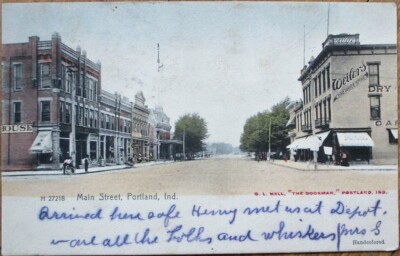 Weiler's
DRY
CAR
HOUSE
H 27218 Main Street, Portland, Ind.
S. L. HALL, "THE BOOKMAN," PORTLAND, IND.
Arrived here safe Henry met us at Depot.
all the folks and whiskers Mrs S
Handcolored.